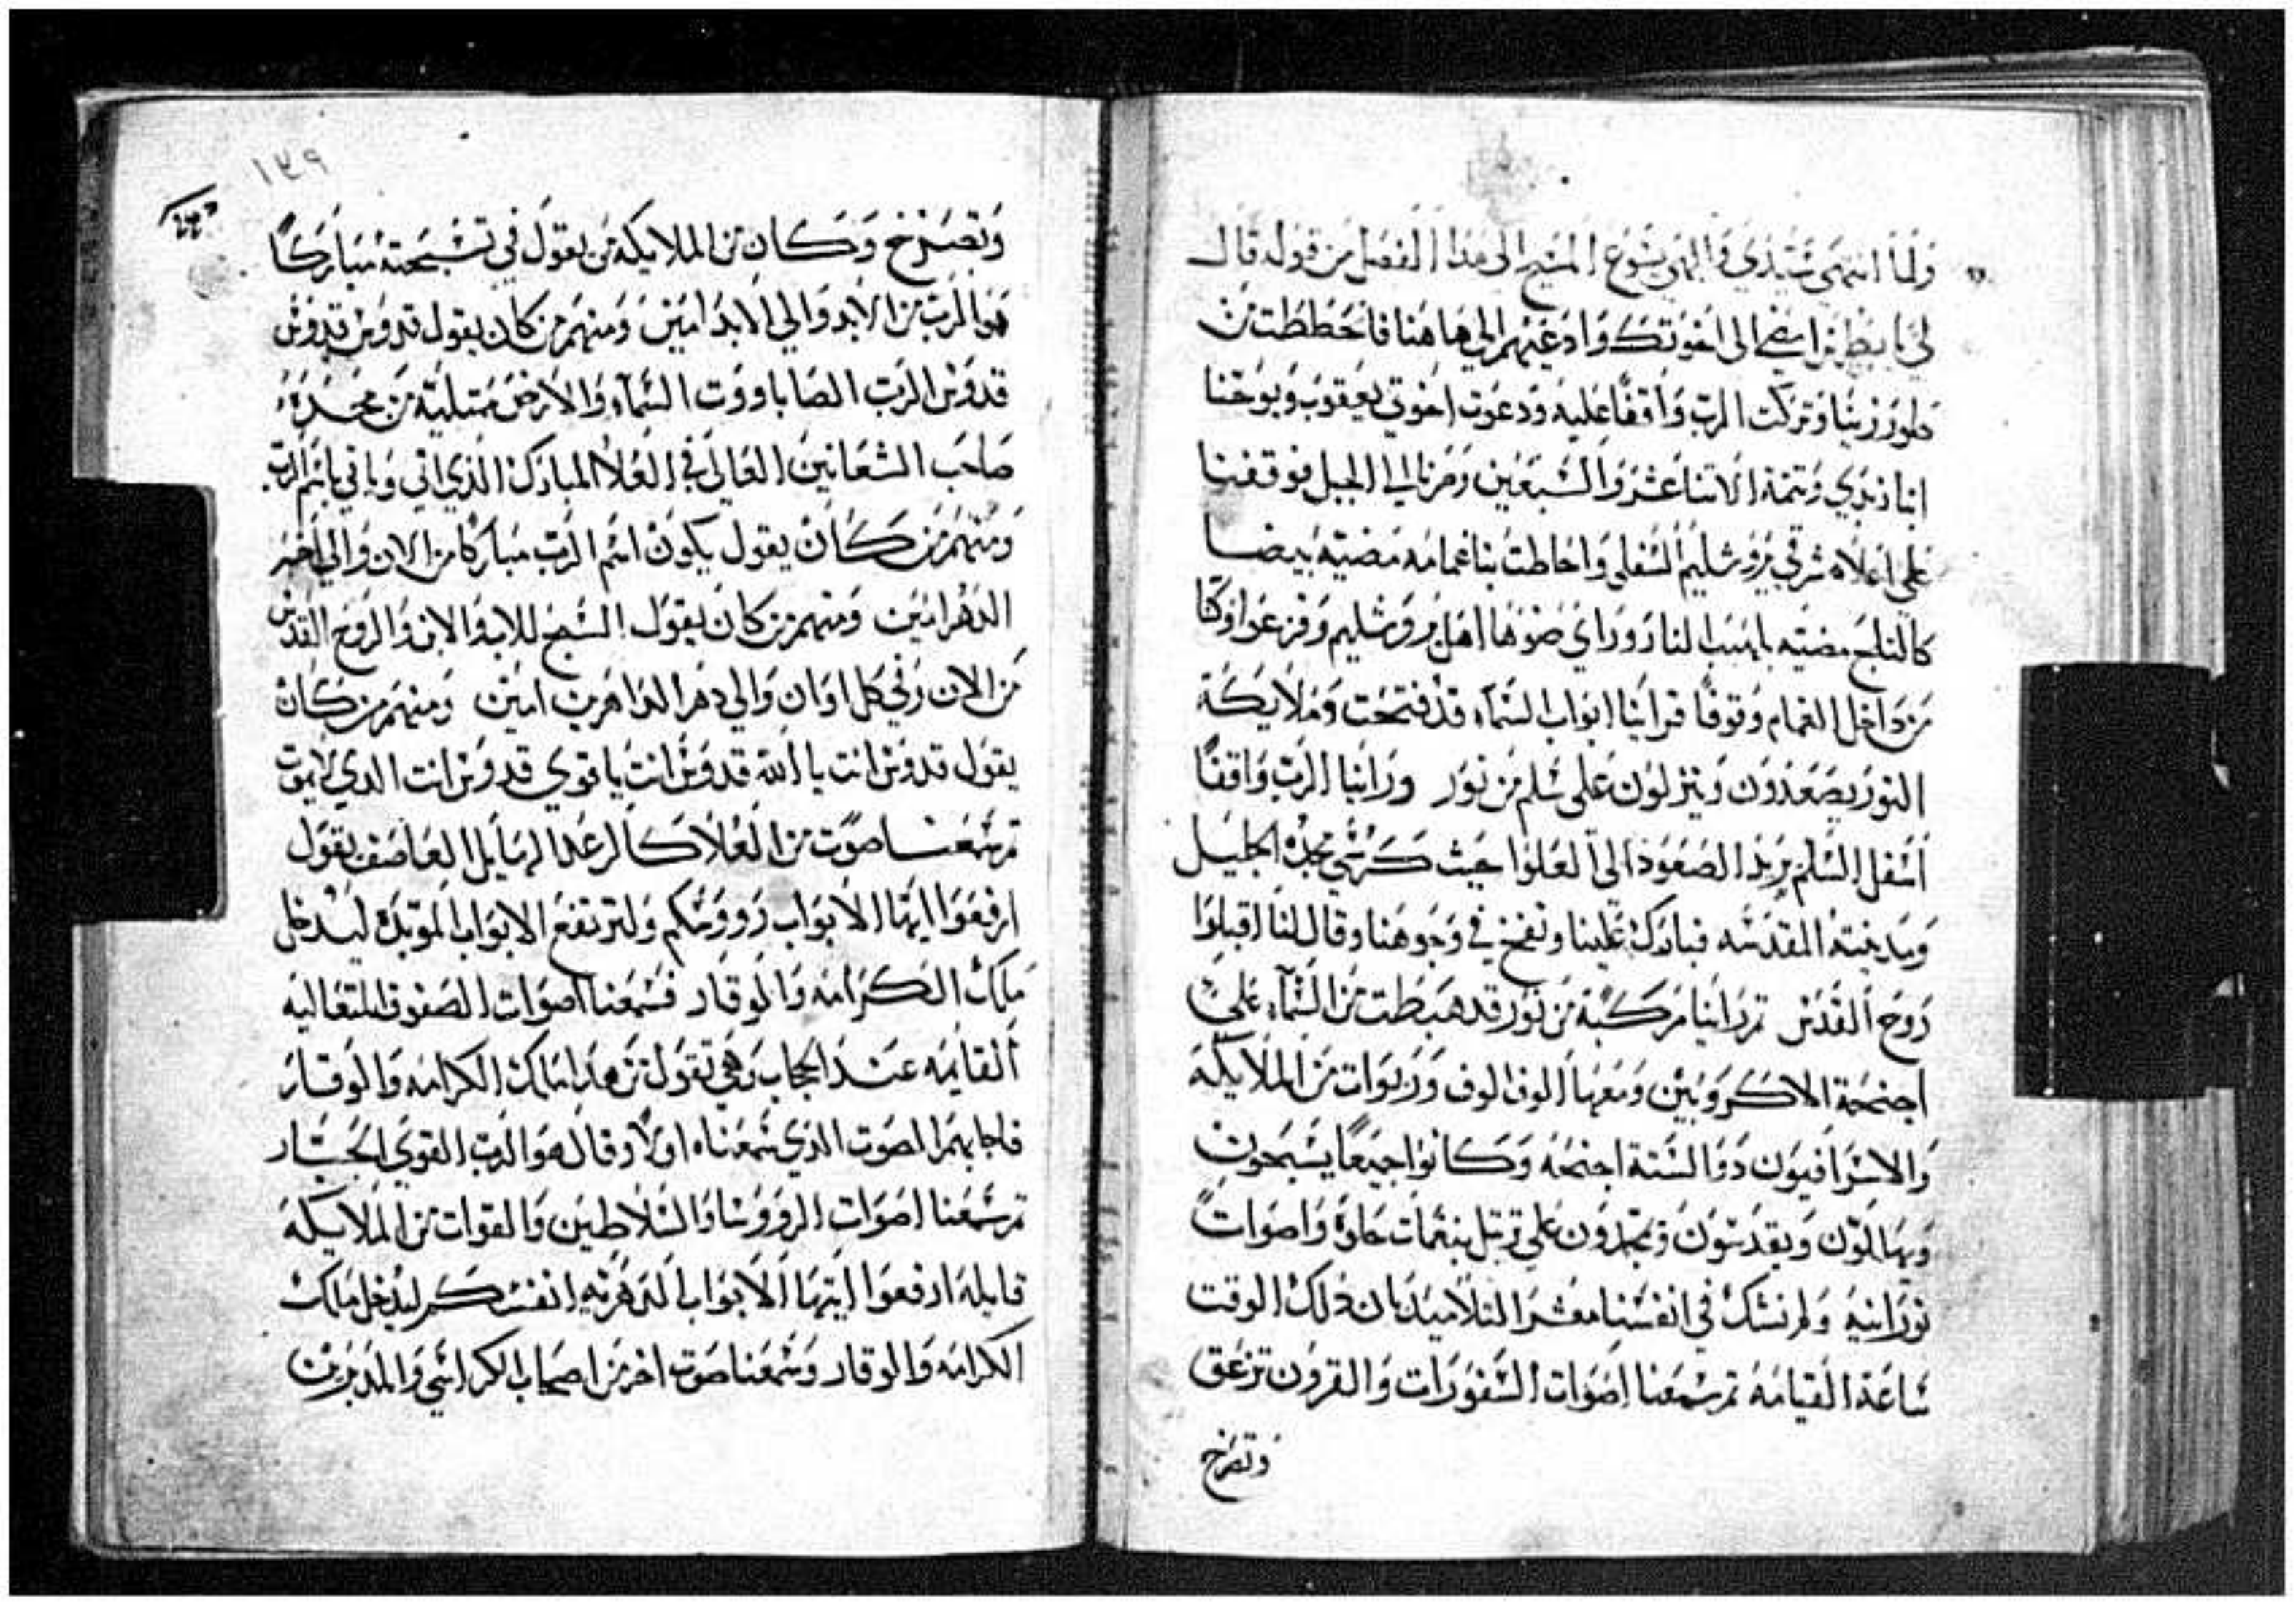 ولما انتهي سيدي والهي يشوع المسيح الى هذا الفصل من قوله قال
لي يا بطرس امضي الى اخوتك وادعيهم الي هاهنا فانحططت من
طور زيتا وتركت الرب واقفًا عليه ودعوت اخوتي يعقوب ويوحنا
ابنا زبدي وتتمة الاتنا عشر والسبعين وصرنا الي الجبل فوقفنا
علي اعلاه شرقي يروشليم السفلي واحاطت بنا غمامه مضيه بيضا
كالتلج مضيه بلهيب النار وراي ضوها اهل يروشليم وفزعوا وكنا
من داخل الغمام وقوفًا فراينا ابواب السمآء قد فتحت وملايكة
النور يصعدون وينزلون علي سلم من نور وراينا الرب واقفًا
اسفل السلم يريد الصعود الى العلوا حيث كرسي مجده الجليل
ومدينته المقدسه فبارك علينا ونفخ في وجوهنا وقال لنا اقبلوا
روح القدس تم راينا مركبة من نور قد هبطت من السمآء علي
اجنحة الاكروبين ومعها الوف الوف وربوات من الملايكة
والاسرافيون دوا الستة اجنحه وكانوا جيعًا يسبحون
ويهاللون ويقدسون ويمجدون علي ترتل بنغمات حلوة واصوات
نورانيه ولم نشك في انفسنا معشر التلاميد بان دلك الوقت
ساعة القيامه تم سمعنا اصوات السفورات والقرون تزعق
وتصرخ
١٣٩
وتصرخ وكان من الملايكه من يقول في تسبحته مباركًا
هو الرب من الابد والي الابد امين ومنهم من كان يقول قدوس قدوس
قدوس الرب الصاباووت السمآء والارض ممتلية من مجده
صاحب الشعانين العالي في العلا المبارك الذي اتي وياتي باسم الرب
ومنهم من كان يقول يكون اسم الرب مباركا من الان والي اخر
الدهر امين ومنهم من كان يقول السبح للاب والابن والروح القدس
من الان وفي كل اوان والي دهر الداهرين امين ومنهم من كان
يقول قدوس انت يا الله قدوس انت يا قوي قدوس انت الدي لا يموت
تم سمعنا صوت من العلا كالرعد الهايل العاصف يقول
ارفعوا ايها الابواب رووسكم ولترتفع الابواب الموبده ليدخل
ملك الكرامه والوقار فسمعنا اصوات الصفوف المتعاليه
القايمه عند الحجاب وهي تقول من هدا ملك الكرامه والوقار
فاجابهم الصوت الدي سمعناه اولا وقال هو الرب القوي الجبار
تم سمعنا اصوات الرووسا والسلاطين والقوات من الملايكة
قايلة ارفعوا ايتها الابواب الدهريه انفسكم ليدخل ملك
الكرامه والوقار وسمعنا صوت اخر من اصحاب الكراسي والمدبرين